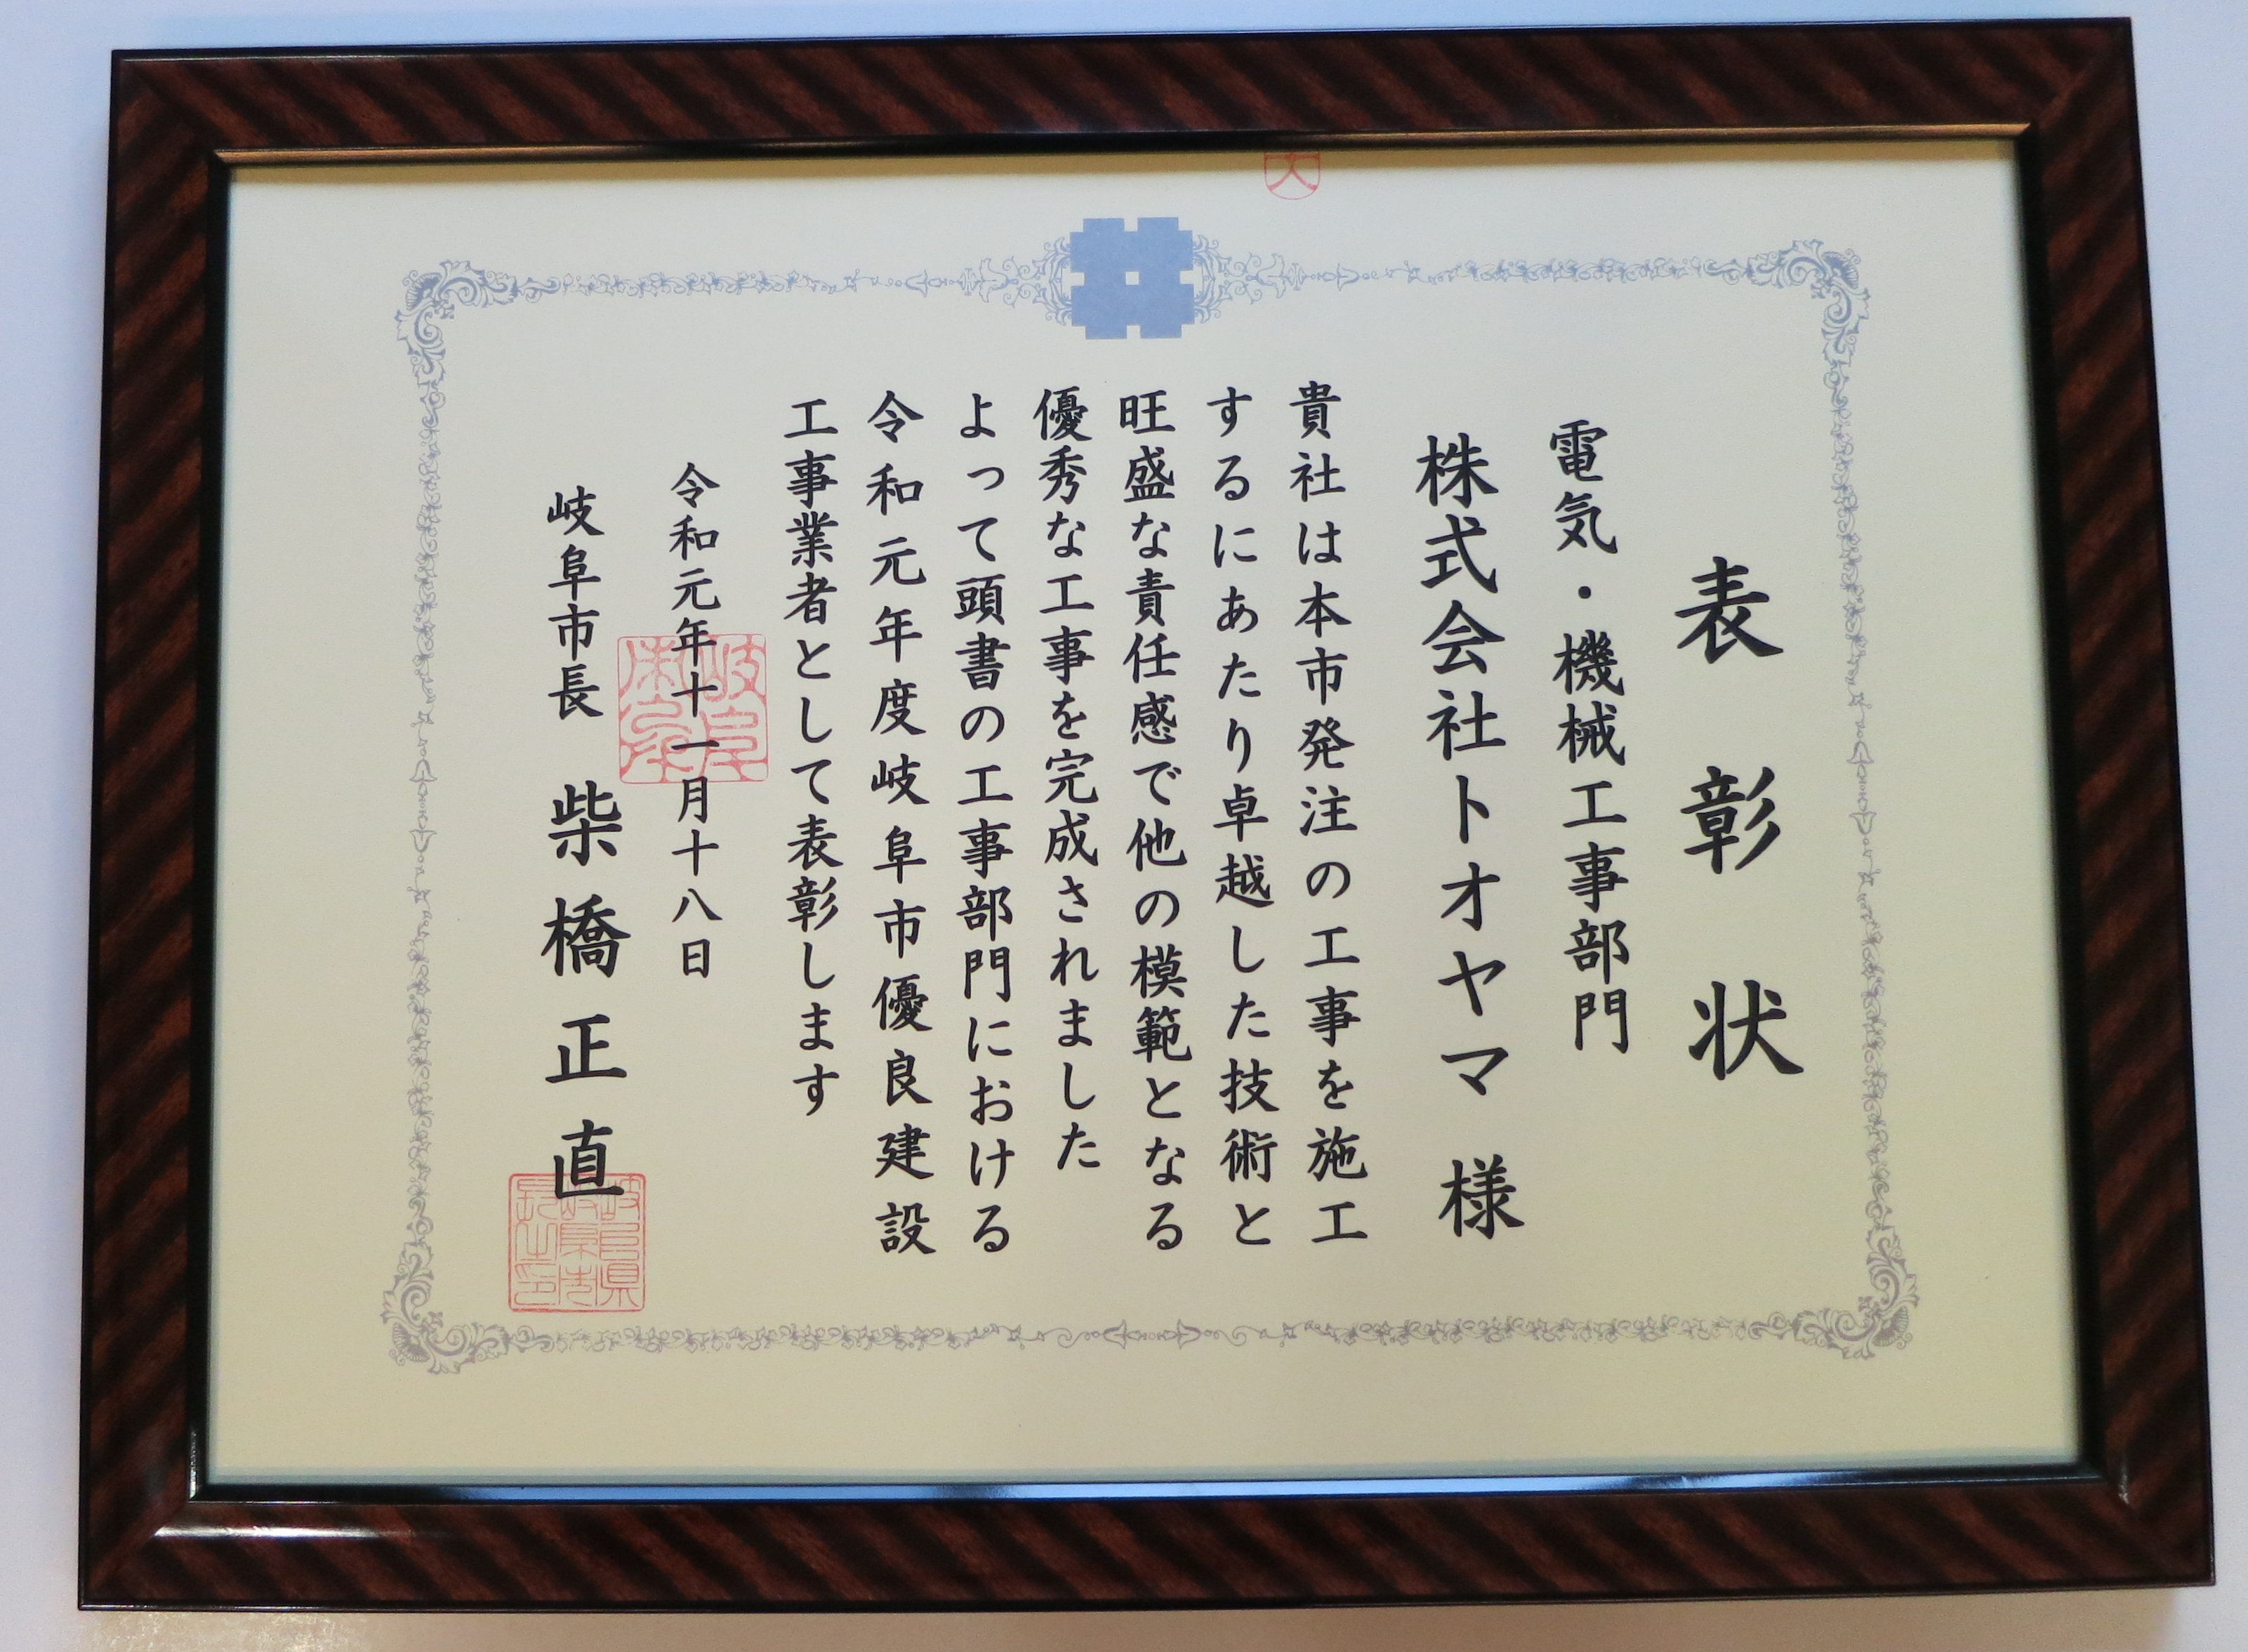 表彰状
電気・機械工事部門
株式会社トオヤマ 様
貴社は本市発注の工事を施工
するにあたり卓越した技術と
旺盛な責任感で他の模範となる
優秀な工事を完成されました
よって頭書の工事部門における
令和元年度岐阜市優良建設
工事業者として表彰します
令和元年十一月十八日
岐阜市長 柴橋正直